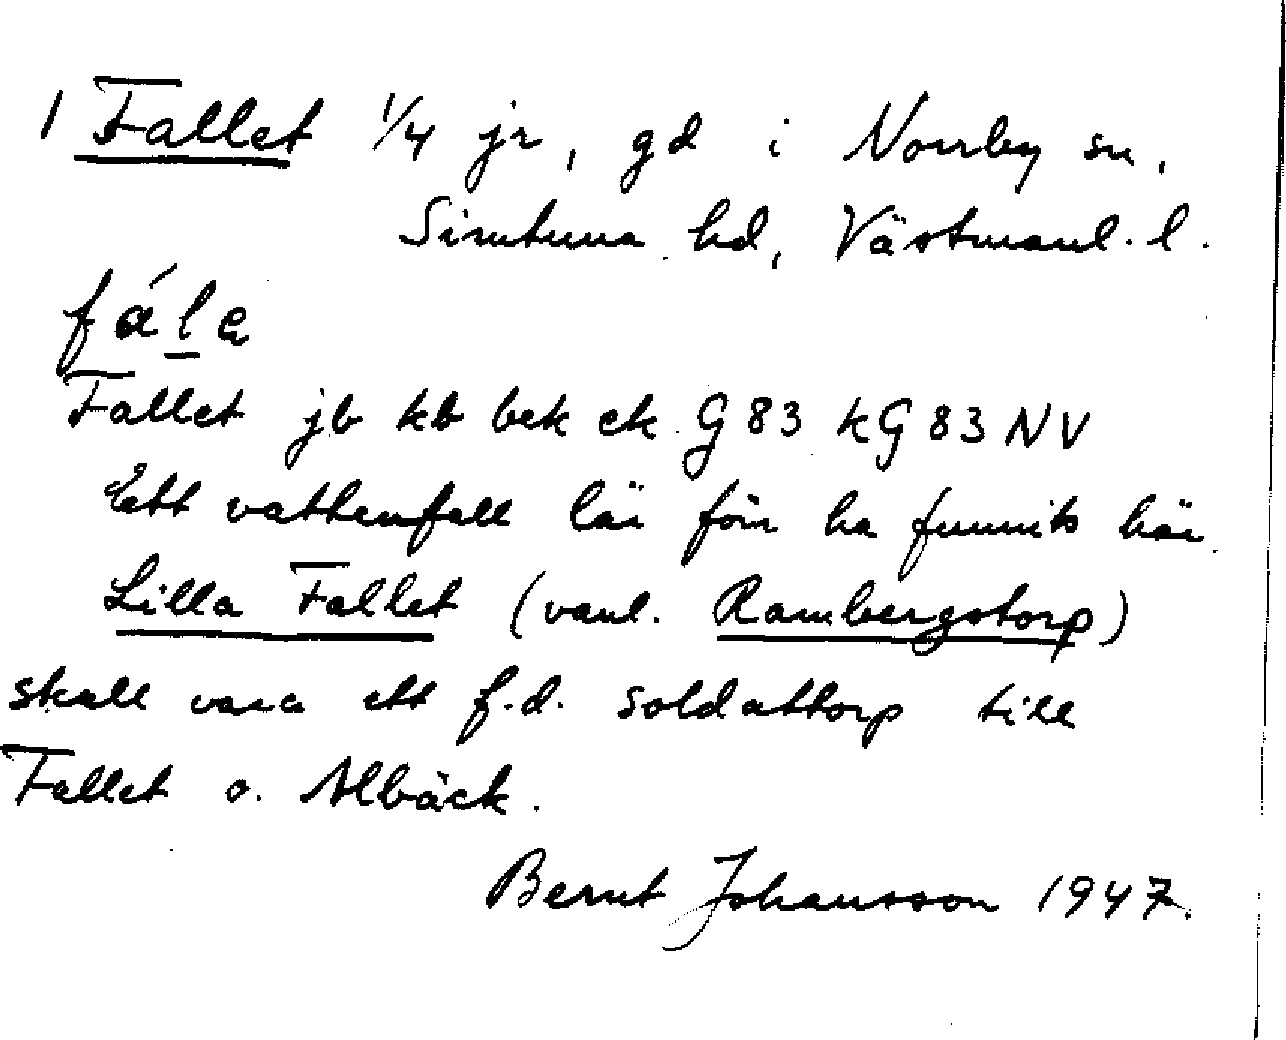 1 Fallet 1/4 jr, gd i Norrby sn,
Simtuna hd, Västmanl. l.
fála̲
Fallet jb kb bek ek G 83 kG 83 NV
Ett vattenfall lär förr ha funnits här.
Lilla Fallet (vanl. Rambergstorp)
skall vara ett f.d. soldattorp till
Fallet o. Albäck.
Bernt Johansson 1947.